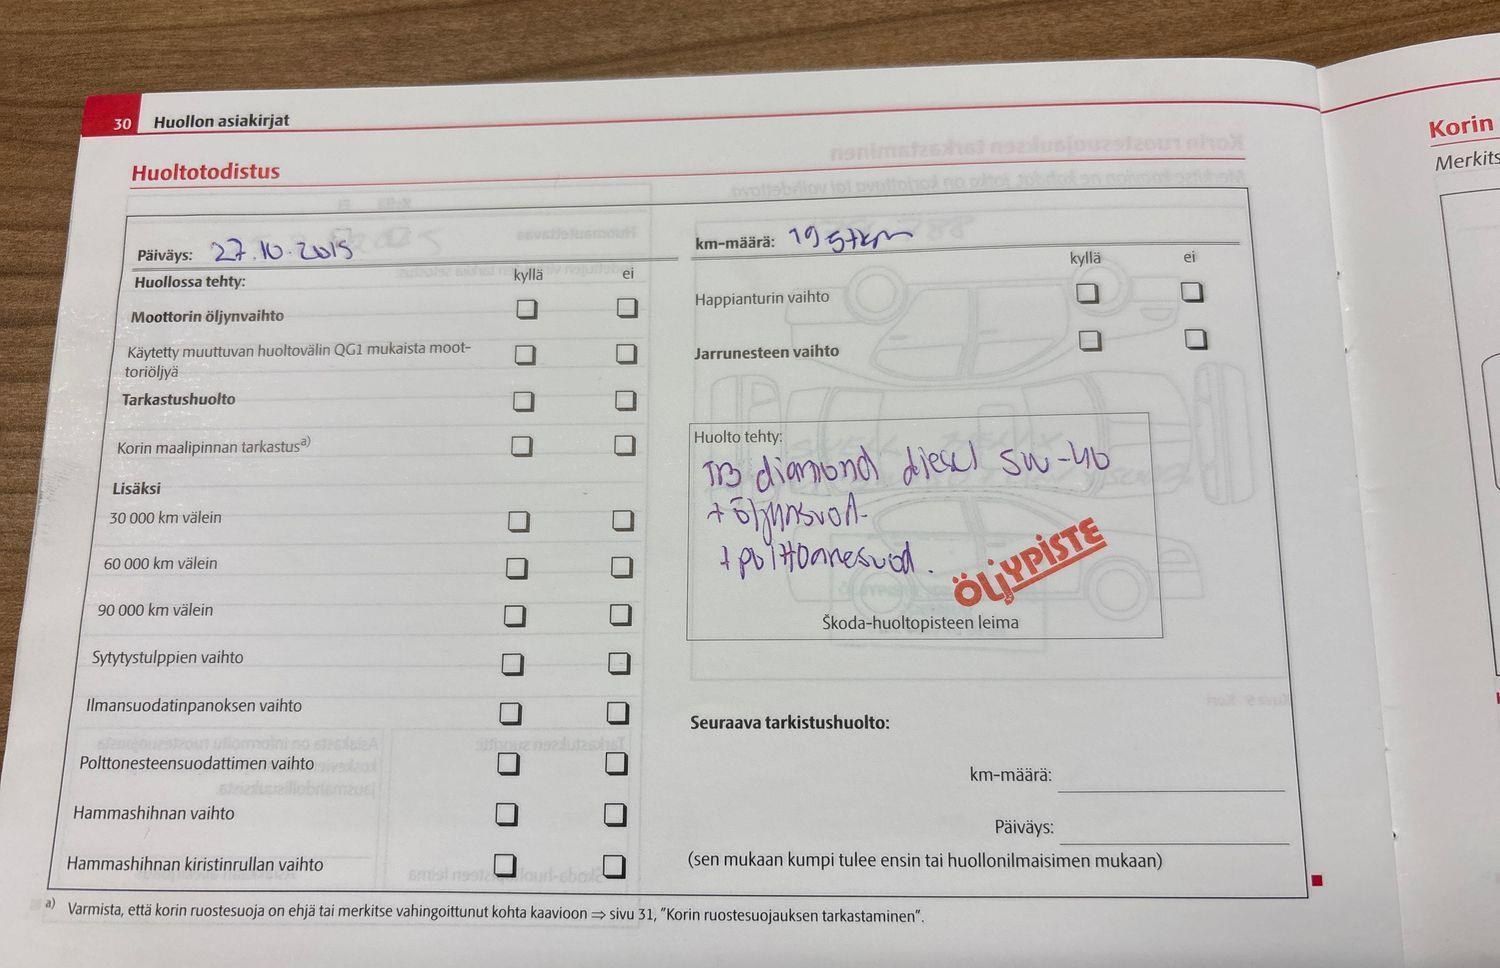 30 Huollon asiakirjat
Huoltotodistus
Päiväys: 27.10.2015
Huollossa tehty: kyllä ei
Moottorin öljynvaihto
Käytetty muuttuvan huoltovälin QG1 mukaista moot-
toriöljyä
Tarkastushuolto
Korin maalipinnan tarkastus a)
Lisäksi
30 000 km välein
60 000 km välein
90 000 km välein
Sytytystulppien vaihto
Ilmansuodatinpanoksen vaihto
Polttonesteensuodattimen vaihto
Hammashihnan vaihto
Hammashihnan kiristinrullan vaihto
km-määrä: 195tkm
kyllä ei
Happianturin vaihto
Jarrunesteen vaihto
Huolto tehty:
diamond diesel 5W-40
+ öljynsuod.
+ polttoainesuod.
ÖLJYPISTE
Škoda-huoltopisteen leima
Seuraava tarkistushuolto:
km-määrä:
Päiväys:
(sen mukaan kumpi tulee ensin tai huollonilmaisimen mukaan)
a) Varmista, että korin ruostesuoja on ehjä tai merkitse vahingoittunut kohta kaavioon ⇒ sivu 31, "Korin ruostesuojauksen tarkastaminen".
Korin
Merkits